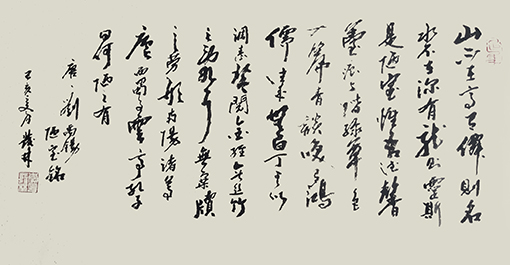 山不在高有僊則名
水不在深有龍則靈斯
是陋室惟吾德馨
苔痕上階綠草色
入簾青談笑有鴻
儒往來無白丁可以
調素琴閱金經無絲竹
之亂耳無案牘
之勞形南陽諸葛
廬西蜀子雲亭孔子
曰何陋之有
唐劉禹錫
陋室銘
己亥夏月